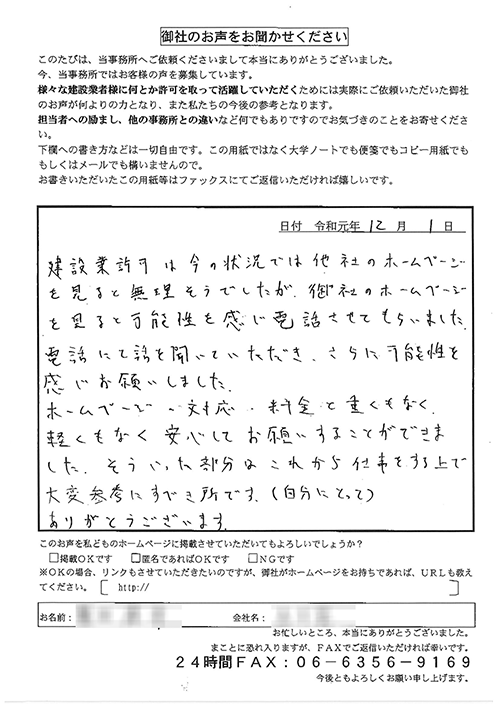 御社のお声をお聞かせください
このたびは、当事務所へご依頼くださいまして本当にありがとうございました。
今、当事務所ではお客様の声を募集しています。
様々な建設業者様に何とか許可を取って活躍していただくためには実際にご依頼いただいた御社
のお声が何よりの力となり、また私たちの今後の参考となります。
担当者への励まし、他の事務所との違いなど何でもありですのでお気づきのことをお寄せくださ
い。
下欄への書き方などは一切自由です。この用紙ではなく大学ノートでも便箋でもコピー用紙でも
もしくはメールでも構いませんので。
お書きいただいたこの用紙等はファックスにてご返信いただければ嬉しいです。
日付 令和元年 12 月 1 日
建設業許可は今の状況では他社のホームページ
を見ると無理そうでしたが、御社のホームページ
を見ると可能性を感じ電話させてもらいました。
電話にて話を聞いていただき、さらに可能性を
感じお願いしました。
ホームページ・対応・料金と重くもなく、
軽くもなく安心してお願いすることができま
した。そういった部分はこれから仕事をする上で
大変参考にすべき所です。(自分にとって)
ありがとうございます。
このお声を私どものホームページに掲載させていただいてもよろしいでしょうか?
□掲載OKです □匿名であればOKです □NGです
※OKの場合、リンクもさせていただきたいのですが、御社がホームページをお持ちであれば、URLも教え
てください。[ http:// ]
お名前: 会社名:
お忙しいところ、本当にありがとうございました。
まことに恐れ入りますが、FAXでご返信いただければ幸いです。
24時間FAX:06-6356-9169
今後ともよろしくお願い申し上げます。